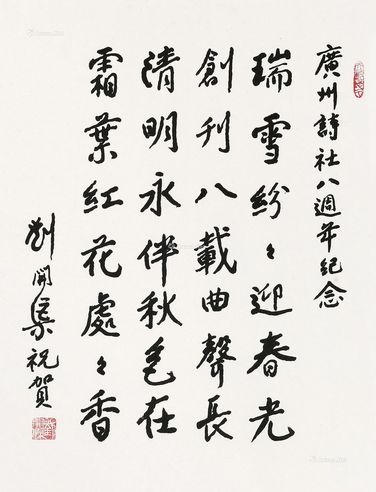 廣州詩社八週年紀念
瑞雪紛々迎春光
創刊八載曲聲長
清明永伴秋色在
霜葉紅花處々香
劉開渠祝賀